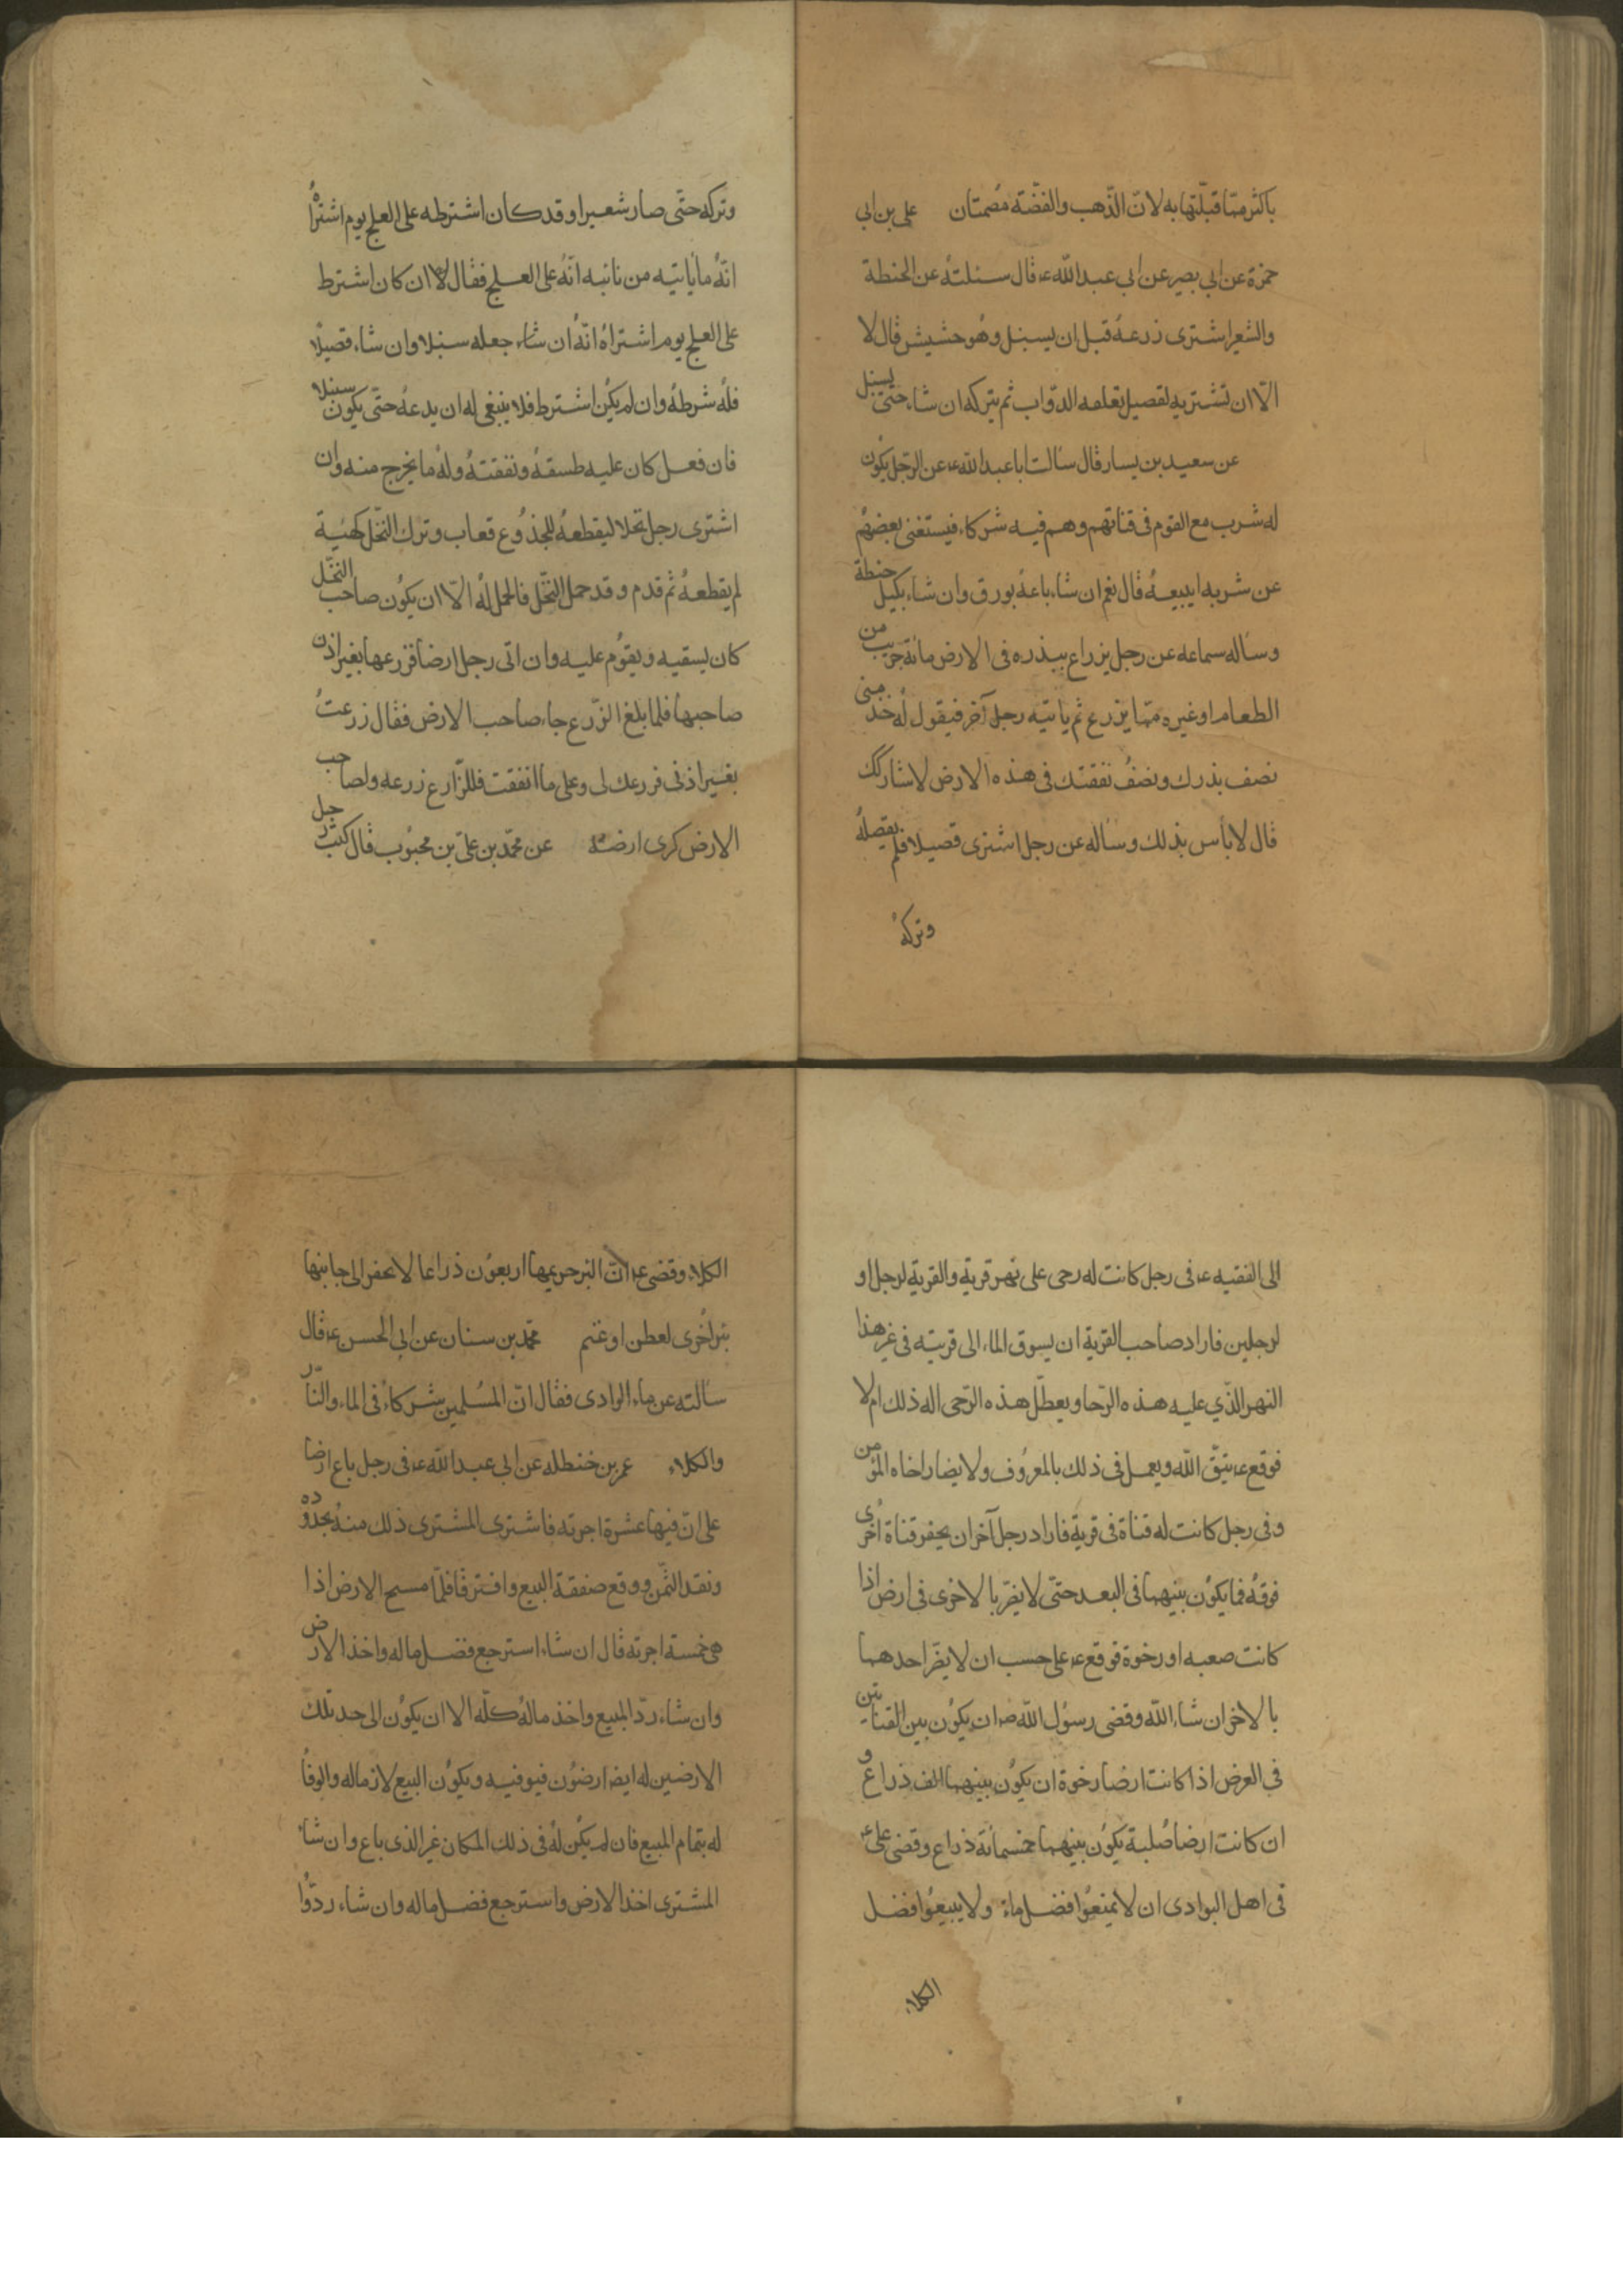 باكثر ممّا قبّلتها به لانّ الذّهب والفضّة مُصمتان علي بن ابي
حمزة عن ابي بصير عن ابي عبد الله ع قال سئلتهُ عن الحنطة
والشعير اشترى زرعهُ قبل ان يسنبل وهُو حشيش قال لا
الّا ان تشتريه لقصيل تعلفه الدوّاب ثم يتركه ان شاء حتّى يسنبل
عن سعيد بن يسار قال سالت ابا عبد الله ع عن الرّجل يكُون
له شرب مع القوم فى قناتهم وهم فيه شركاء فيستغنى بعضهُم
عن شربه ايبيعهُ قال نعم ان شاء باعهُ بورق وان شاء بكيل حنطة
وساله سماعه عن رجل يزراع ببذره فى الارض مائة جريب من
الطعام او غيره ممّا يزرع ثم ياتيه رجل آخر فيقول لهُ خذ منى
نصف بذرك ونصفُ نفقتك فى هذه الارض لاشاركك
قال لا بأس بذلك وساله عن رجل اشترى قصيلا فلم يقصلهُ
وتركهُ
وتركه حتّى صار شعيرا وقد كان اشترطه على العلج يوم اشتراهُ
انّهُ ما ياتيه من نائبه انّهُ على العلج فقال لا ان كان اشترط
على العلج يوم اشتراهُ انّهُ ان شاء جعله سنبلا وان شاء قصيلًا
فلهُ شرطهُ وان لم يكُن اشترط فلا ينبغى له ان يدعهُ حتّى يكون سنبلا
فان فعل كان عليه طسقهُ ونفقتهُ ولهُ ما يخرج منه وان
اشترى رجل نخلا ليقطعهُ للجذُوع فغاب وترك النّخل كهيئة
لم يقطعهُ ثم قدم وقد حمل النّخل فالحمل لهُ الّا ان يكُون صاحب النخّل
كان يسقيه ويقوُم عليه وان اتى رجل ارضا فزرعها بغير اذن
صاحبها فلما بلغ الزّرع جاء صاحب الارض فقال زرعتُ
بغير اذنى فزرعك لى وعلى ما انفقت فللزّارع زرعه ولصاحب
الارض كرى ارضهُ عن محمّد بن علىّ بن محبُوب قال كتب رجل
الى الفقيه ع فى رجل كانت له رحى على نهر قرية والقرية لرجل او
لرجلين فاراد صاحب القرية ان يسوق الماء الى قريته فى غير هذا
النهر الذّي عليه هذه الرّحا ويعطّل هذه الرّحى اله ذلك ام لا
فوقع ع يتق الله ويعمل فى ذلك بالمعرُوف ولا يضار اخاه المؤمن
وفى رجل كانت له قناة فى قرية فاراد رجل آخر ان يحفر قناة اخرُى
فوقهُ فما يكوُن بينهما فى البعد حتّى لا يضرّ بالاخرى فى ارض اذا
كانت صعبه او رخوة فوقع ع على حسب ان لا يضّر احدهما
بالاخر ان شاء الله وقضى رسوُل الله ص ان يكُون بين القناتين
فى العرض اذا كانت ارضا رخوة ان يكوُن بينهما الف ذراع و
ان كانت ارضا صُلبة يكوُن بينهما خمسمائة ذراع وقضى علىّ ع
فى اهل البوادى ان لا يمنعُوا فضل ماء ولا يبيعُوا فضل
الكلاء
الكلاء وقضى ع انّ البئر حريمها اربعوُن ذراعا لا يحفر الى جانبها
بئر اخُرى لعطن او غنم محمّد بن سنان عن ابي الحسن ع قال
سالته عن ماء الوادى فقال انّ المُسلمين شركاءُ فى الماء والنّار
والكلاء عمر بن حنظله عن ابى عبد الله ع فى رجل باع ارضا
على انّ فيها عشرة اجربه فاشترى المشترى ذلك منهُ بحدُوده
ونقد الثمّن ووقع صفقة البيع وافترقا فلمّا مسح الارض اذا
هى خمسة اجربة قال ان شاء استرجع فضل ماله واخذ الارض
وان شاء ردّ المبيع واخذ مالهُ كلّه الا ان يكوُن الى حد تلك
الارضين له ايضا ارضوُن فيوفيه ويكوُن البيع لازما له والوفاُ
له بتمام المبيع فان لم يكُن لهُ فى ذلك المكان غير الذى باع وان شاء
المشترى اخذ الارض واسترجع فضل ماله وان شاء ردُّوا